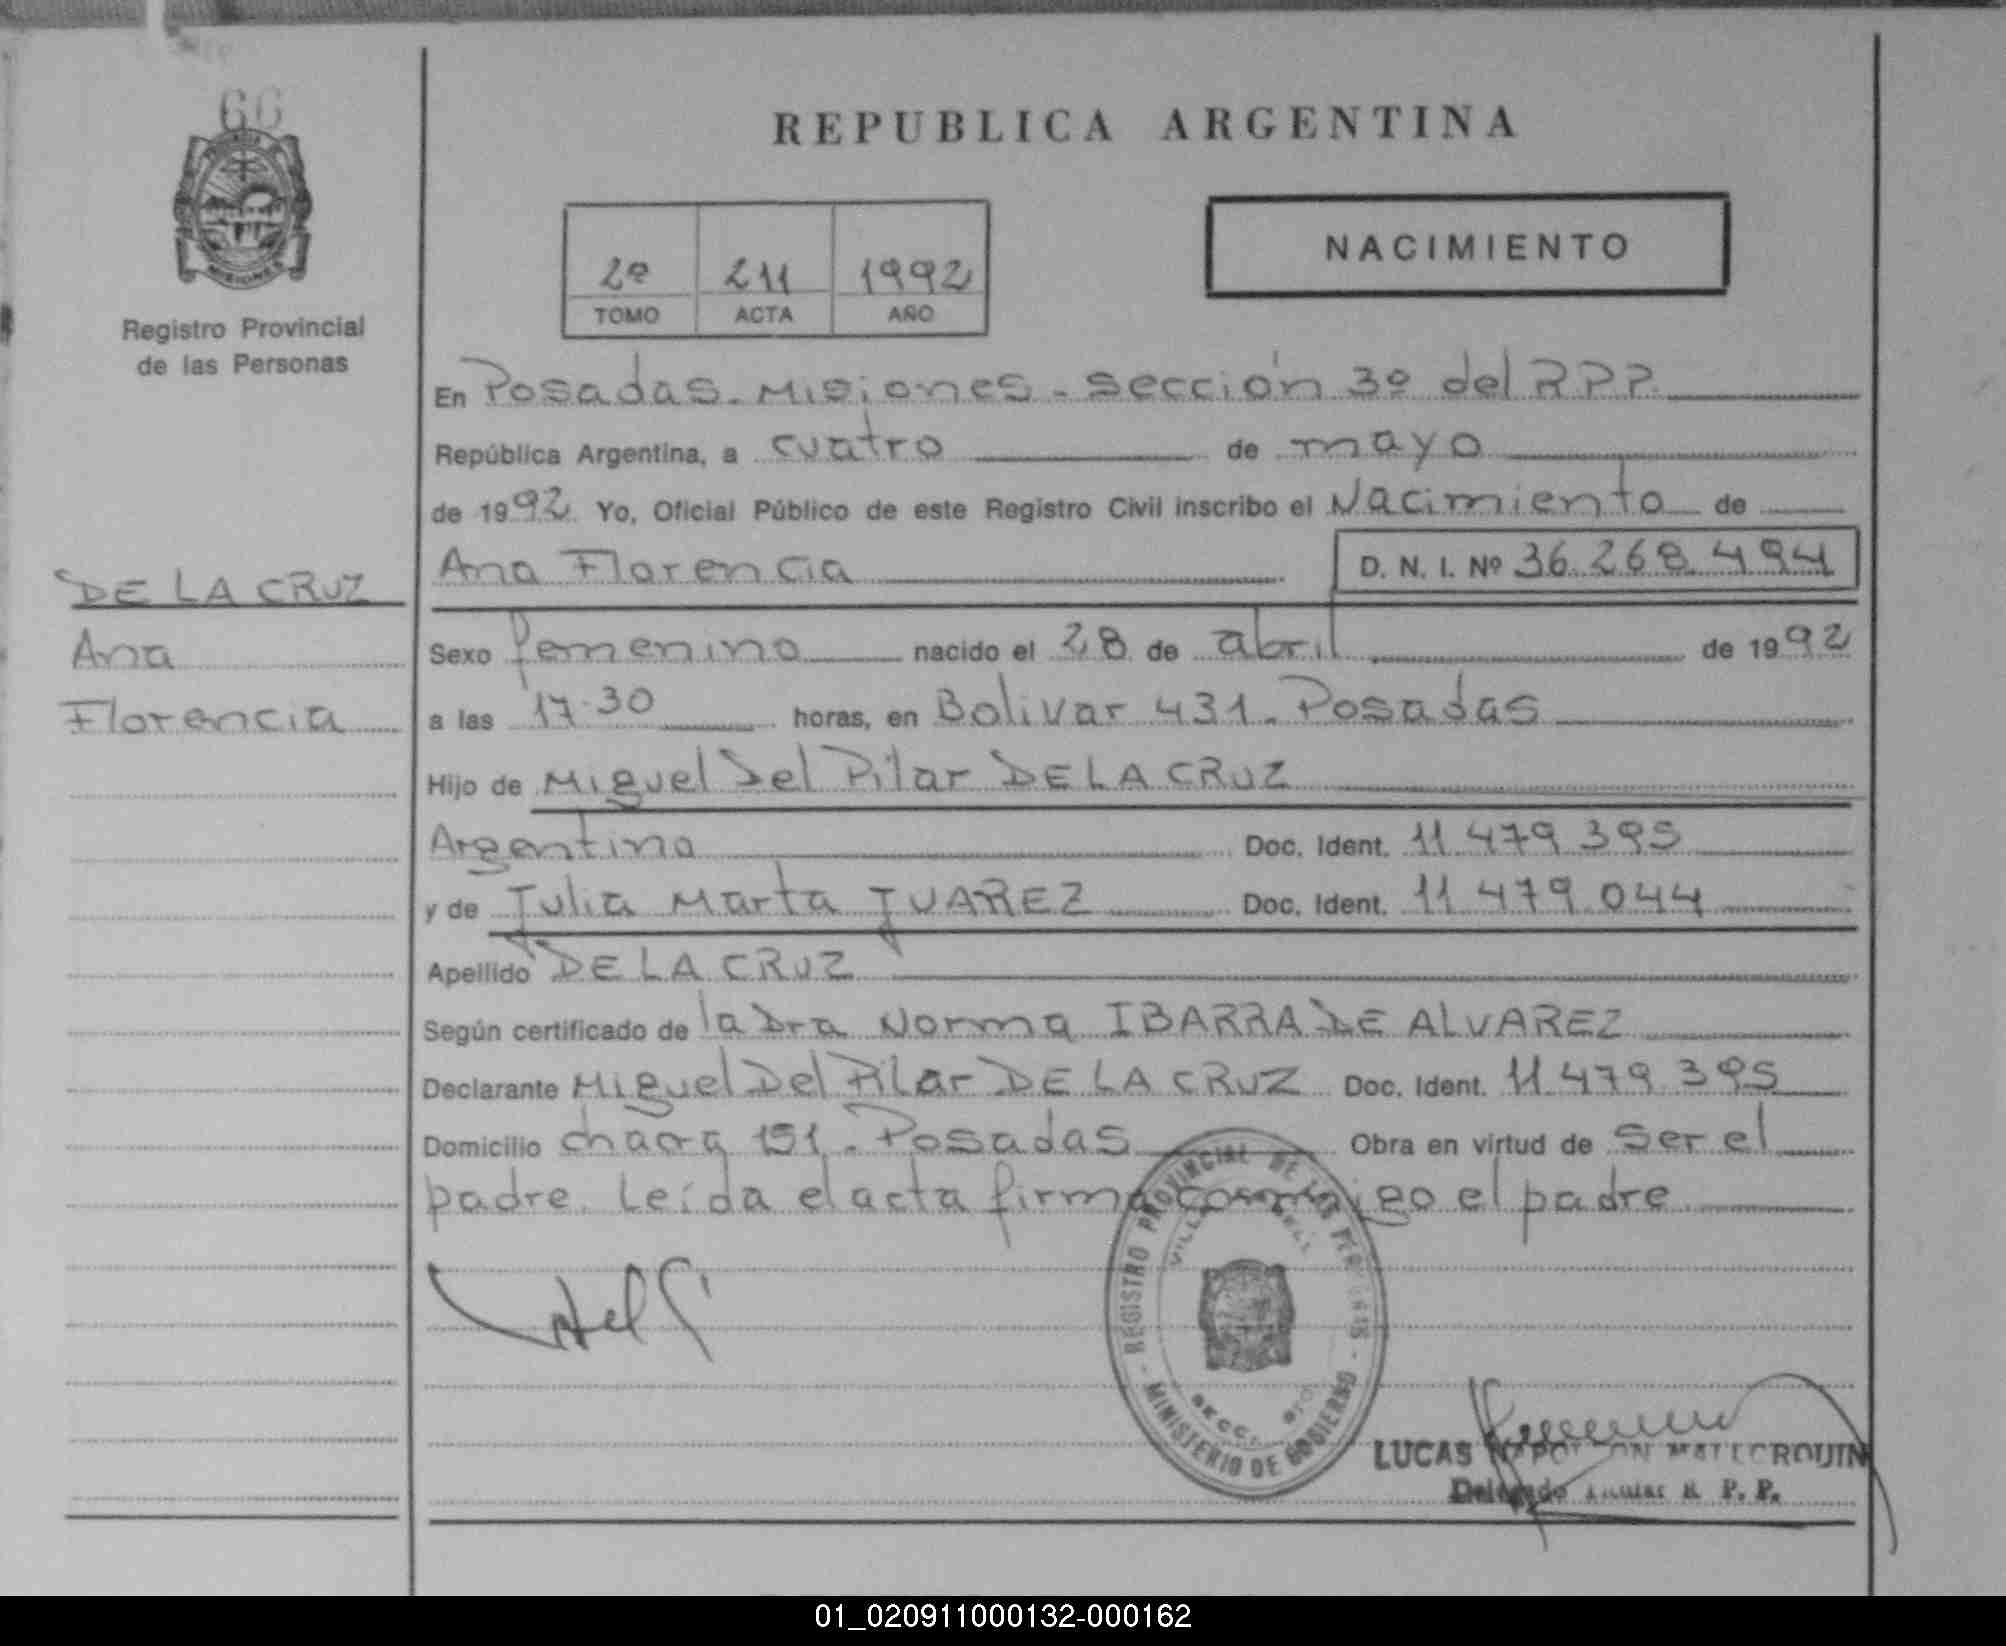 66
MISIONES
Registro Provincial
de las Personas
DE LA CRUZ
Ana
Florencia
REPUBLICA ARGENTINA
2º 211 1992
TOMO ACTA AÑO
NACIMIENTO
En Posadas. Misiones - Sección 3º del R P P.
República Argentina, a cuatro de mayo
de 1992 Yo, Oficial Público de este Registro Civil inscribo el Nacimiento de
Ana Florencia D. N. I. Nº 36.268.494
Sexo femenino nacido el 28 de abril de 1992
a las 17.30 horas, en Bolivar 431. Posadas
Hijo de Miguel Del Pilar DE LA CRUZ
Argentino Doc. Ident. 11.479.395
y de Julia Marta JUAREZ Doc. Ident. 11.479.044
Apellido DE LA CRUZ
Según certificado de la Dra Norma IBARRA DE ALVAREZ
Declarante Miguel Del Pilar DE LA CRUZ Doc. Ident. 11.479.395
Domicilio chacra 151. Posadas Obra en virtud de ser el
padre. Leída el acta firma conmigo el padre.
REGISTRO PROVINCIAL DE LAS PERSONAS
- MINISTERIO DE GOBIERNO -
LUCAS
Delegado Titular R. P. P.
01_020911000132-000162